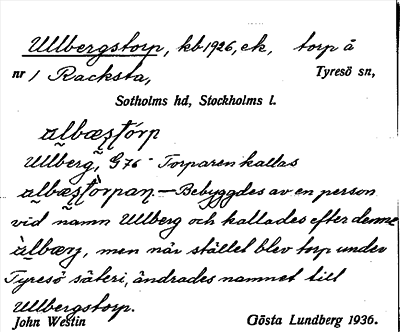 Ullbergstorp, kb 1926, ek, torp å
nr 1 Racksta, Tyresö sn,
Sotholms hd, Stockholms l.
Ullberg, G76 - Torparen kallas
— Bebyggdes av en person
vid namn Ullberg och kallades efter denne
, men när stället blev torp under
Tyresö säteri, ändrades namnet till
Ullbergstorp.
John Westin Gösta Lundberg 1936.